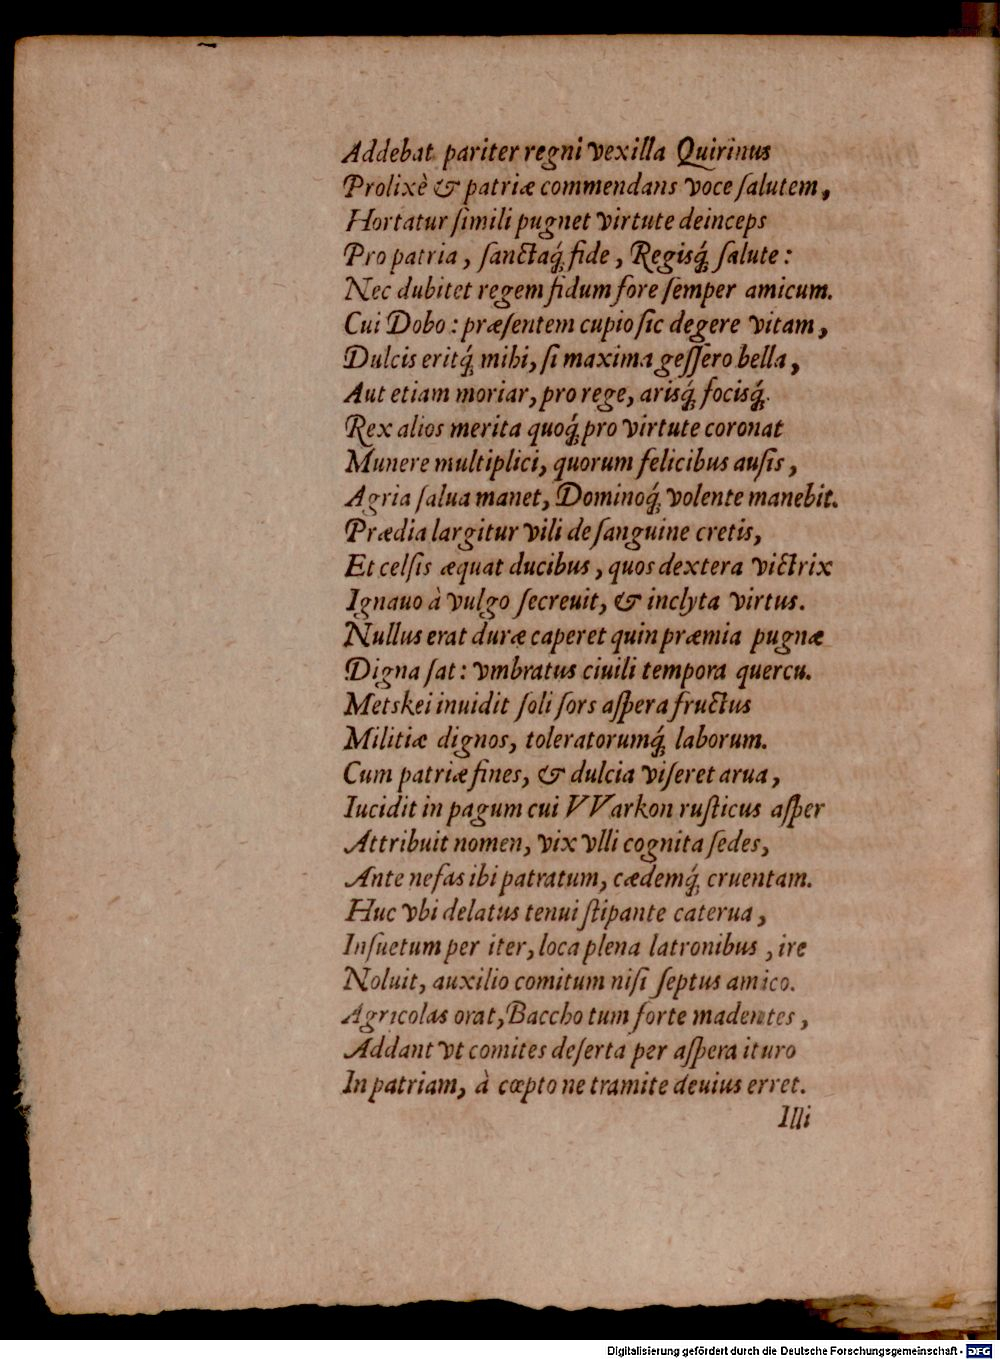 Addebat pariter regni vexilla Quirinus
Prolixè & patriæ commendans voce ſalutem,
Hortatur ſimili pugnet virtute deinceps
Pro patria, ſanctaq́; fide, Regisq́; ſalute:
Nec dubitet regem fidum fore ſemper amicum.
Cui Dobo: præſentem cupio ſic degere vitam,
Dulcis eritq́; mihi, ſi maxima geſſero bella,
Aut etiam moriar, pro rege, arisq́; focisq́;.
Rex alios merita quoq́; pro virtute coronat
Munere multiplici, quorum felicibus auſis,
Agria ſalua manet, Dominoq́; volente manebit.
Prædia largitur vili de ſanguine cretis,
Et celſis æquat ducibus, quos dextera victrix
Ignauo à vulgo ſecreuit, & inclyta virtus.
Nullus erat duræ caperet quin præmia pugnæ
Digna ſat: vmbratus ciuili tempora quercu.
Metskei inuidit ſoli ſors aſpera fructus
Militiæ dignos, toleratorumq́; laborum.
Cum patriæ fines, & dulcia viſeret arua,
Iucidit in pagum cui VVarkon ruſticus aſper
Attribuit nomen, vix vlli cognita ſedes,
Ante nefas ibi patratum, cædemq́; cruentam.
Huc vbi delatus tenui ſtipante caterua,
Inſuetum per iter, loca plena latronibus, ire
Noluit, auxilio comitum niſi ſeptus amico.
Agricolas orat, Baccho tum forte madentes,
Addant vt comites deſerta per aſpera ituro
In patriam, à cœpto ne tramite deuius erret.
Illi
Digitalisierung gefördert durch die Deutsche Forschungsgemeinschaft - DFG